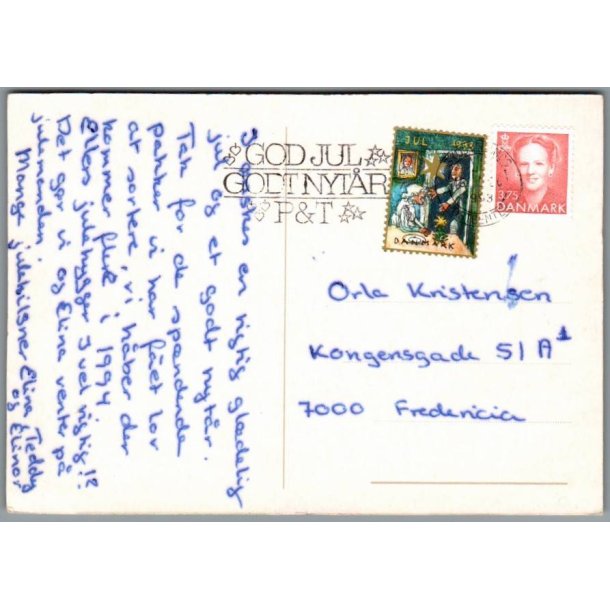 GOD JUL
GODT NYTÅR
P&T
JUL 1993
DANMARK
375
DANMARK
Orla Kristensen
Kongensgade 51 A 1
7000 Fredericia
I ønskes en rigtig glædelig
jul og et godt nytår.
Tak for de spændende
pakker vi har fået lov
at sortere, vi håber der
kommer flere i 1994
Ellers julehygger I vel rigtig!?
Det gør vi og Elina venter på
julemanden.
Mange julehilsner Elina Teddy
og Elinor